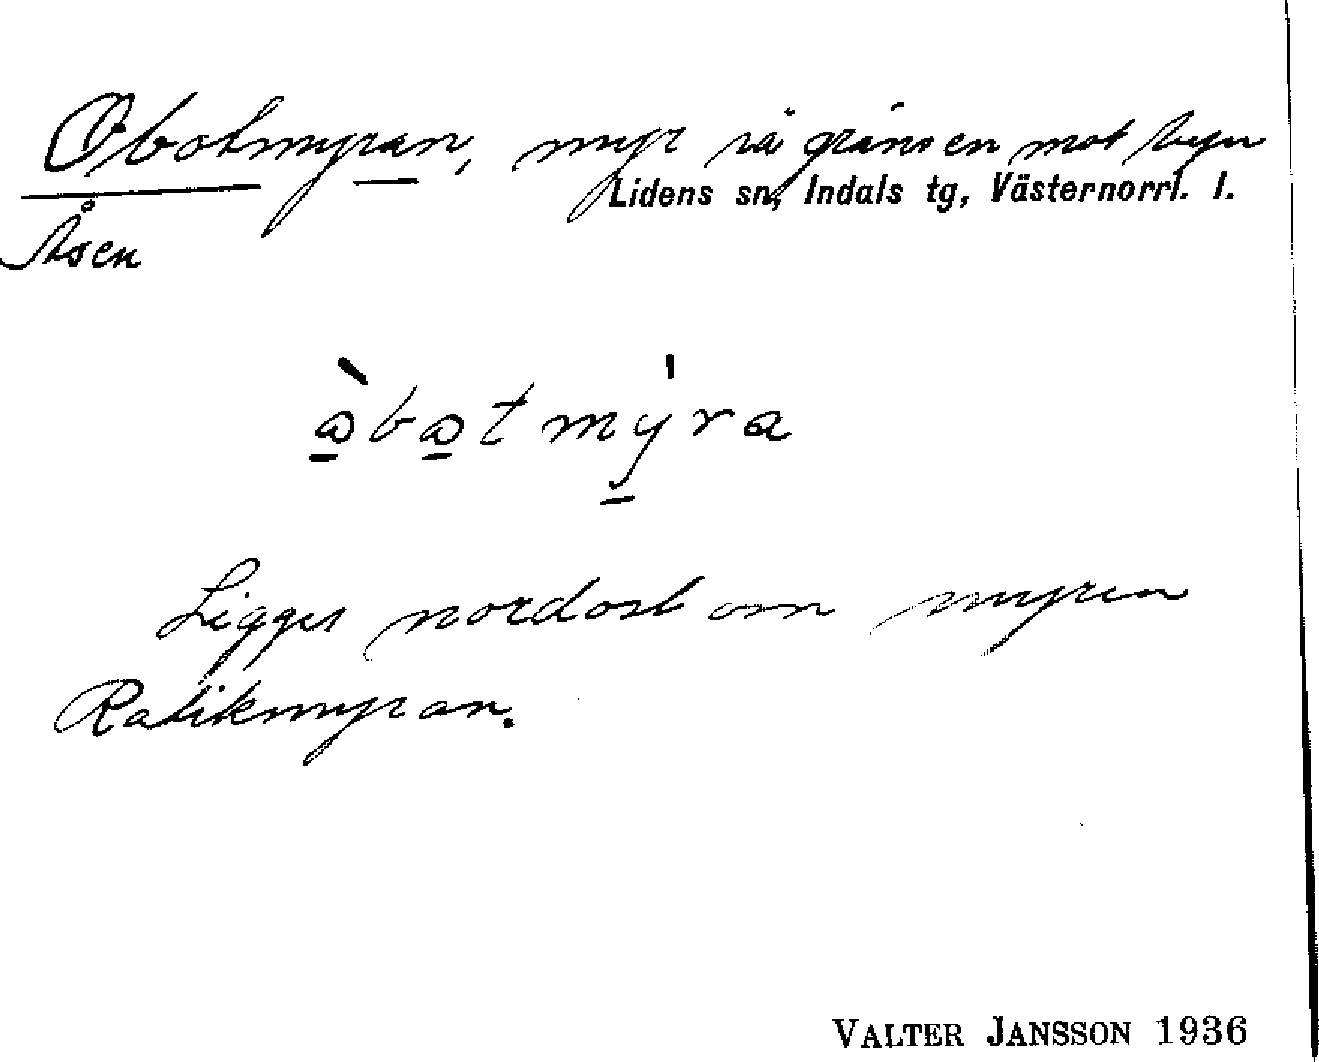 Obotmyran, myr på gränsen mot byn
Lidens sn, Indals tg, Västernorrl. l.
Åsen
åbåtmyra
Ligger nordost om myren
Ratikmyran.
VALTER JANSSON 1936